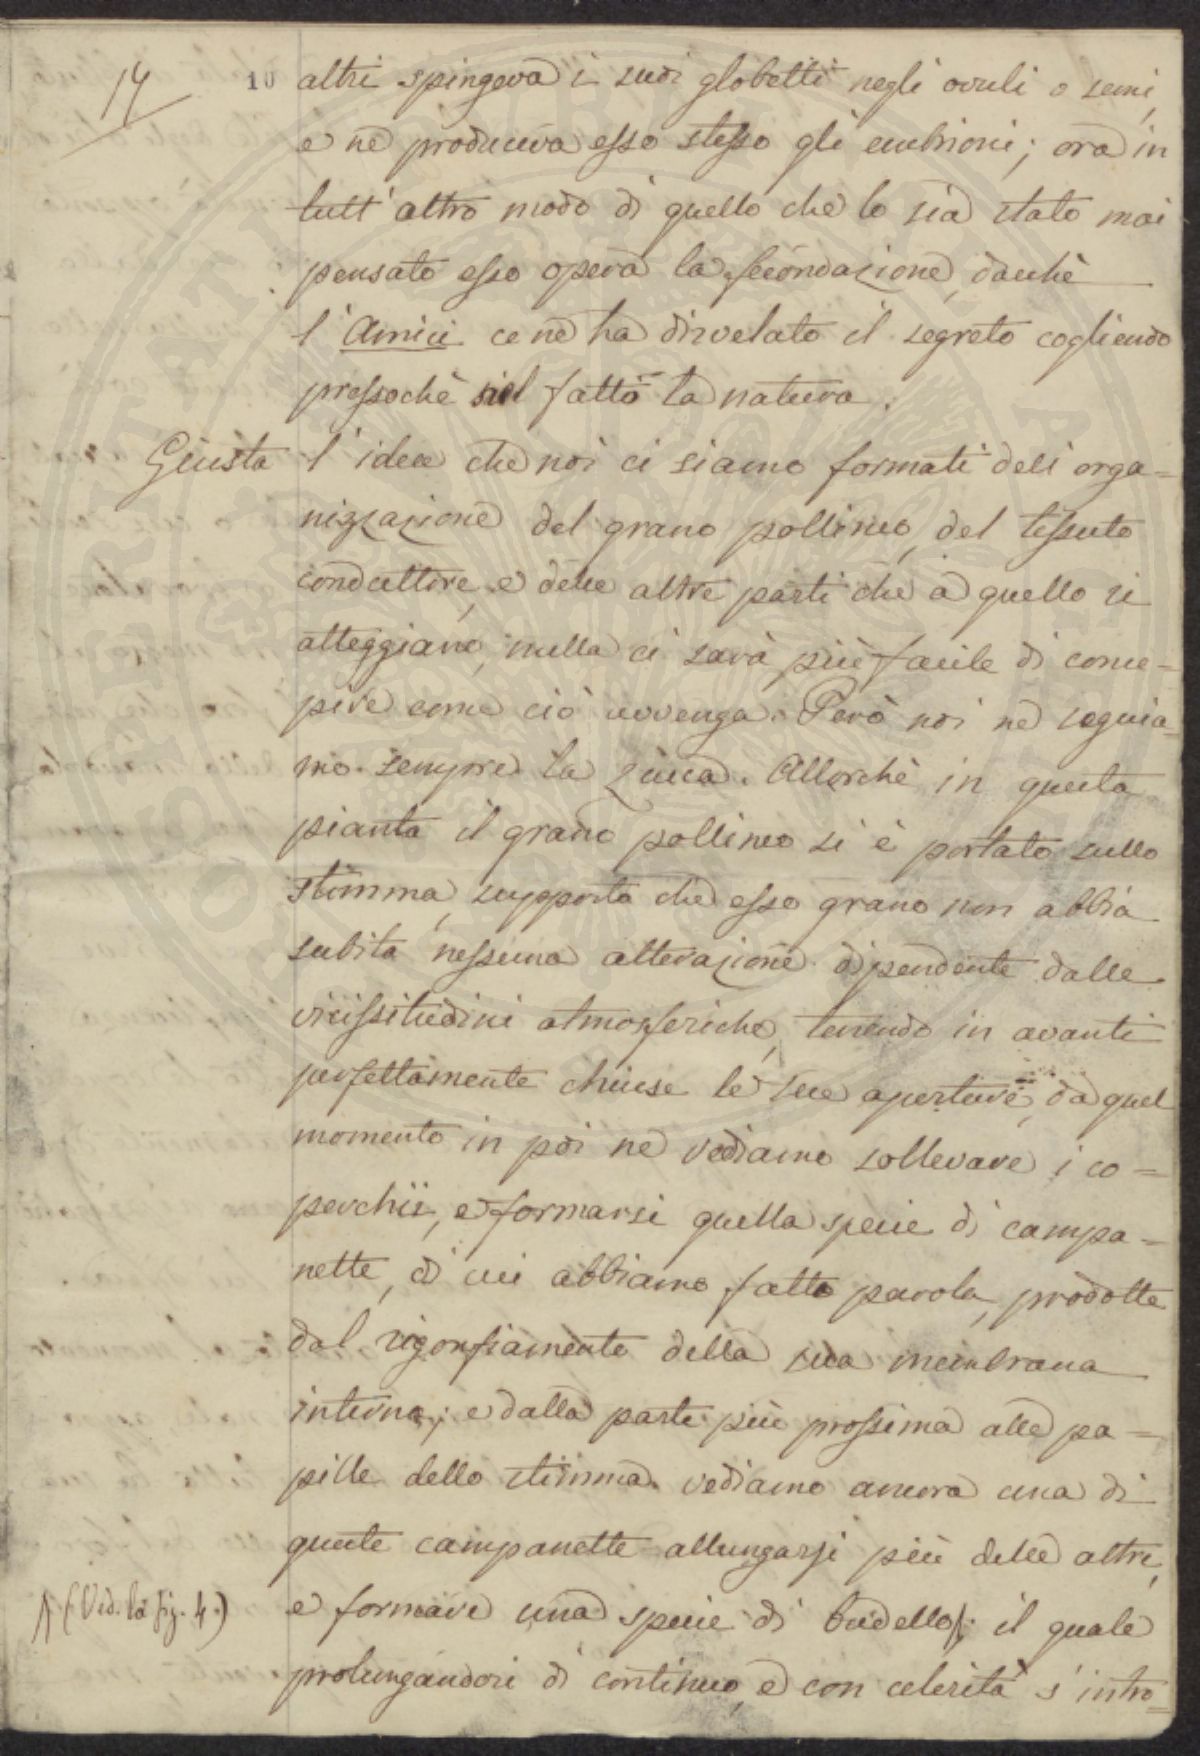 14
10 altri spingeva i suoi globetti negli ovuli o semi,
e ne produceva esso stesso gli embrioni; ora in
tutt'altro modo di quello che lo sia stato mai
pensato esso opera la fecondazione, dacchè
l'Amici ce ne ha disvelato il segreto cogliendo
pressochè sul fatto la natura.
Giusta l'idea che noi ci siamo formati dell'orga=
nizzazione del grano pollineo, del tessuto
conduttore, e delle altre parti che a quello si
atteggiano, nulla ci sarà più facile di conce=
pire come ciò avvenga. Però noi ne seguia=
mo sempre la Zucca. Allorchè in questa
pianta il grano pollineo si è portato sullo
stimma, supposto che esso grano non abbia
subita nessuna alterazione dipendente dalle
vicissitudini atmosferiche, tenendo in avanti
perfettamente chiuse le sue aperture, da quel
momento in poi ne vediamo sollevare i co=
perchii, e formarsi quella specie di campa=
nette, di cui abbiamo fatto parola, prodotte
dal rigonfiamento della sua membrana
interna; e dalla parte più prossima alle pa=
pille dello stimma vediamo ancora una di
queste campanette allungarsi più delle altre,
e formare una specie di budello; il quale
(Ved. la fig. 4.)
prolungandosi di continuo, e con celerità s'intro=